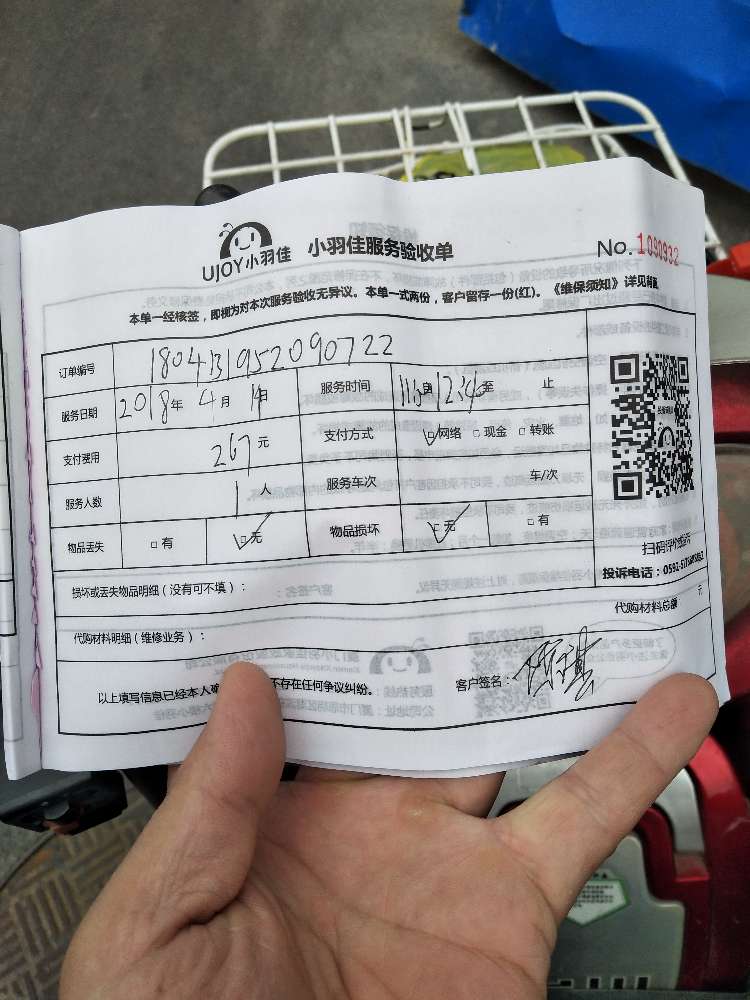 UJOY小羽佳 小羽佳服务验收单 No.1090932
本单一经核签，即视为对本次服务验收无异议。本单一式两份，客户留存一份(红)。《维保须知》详见背面
订单编号 180413195209072​2
服务日期 2018年 4月 14 服务时间 至 止
支付费用 267元 支付方式 ☑网络 □现金 □转账
服务人数 1人 服务车次 车/次
物品丢失 □有 ☑无 物品损坏 ☑无 □有
扫码评价
投诉电话：0592-
损坏或丢失物品明细（没有可不填）：
代购材料总额 元
代购材料明细（维修业务）：
以上填写信息已经本人确 不存在任何争议纠纷。 客户签名：